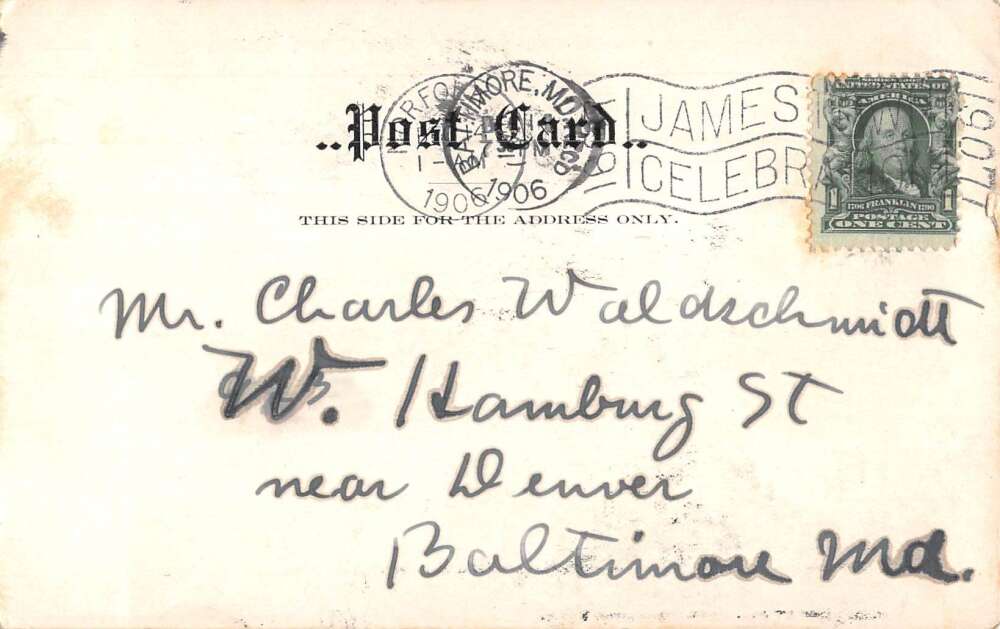 ..Post Card..
BALTIMORE, MD.
1906
1906
JAMES
CELEBRA
1907
UNITED STATES OF
AMERICA
1706 FRANKLIN 1790
1 POSTAGE 1
ONE CENT
THIS SIDE FOR THE ADDRESS ONLY.
Mr. Charles Waldschmidt
W. Hamburg St
near Denver
Baltimore Md.